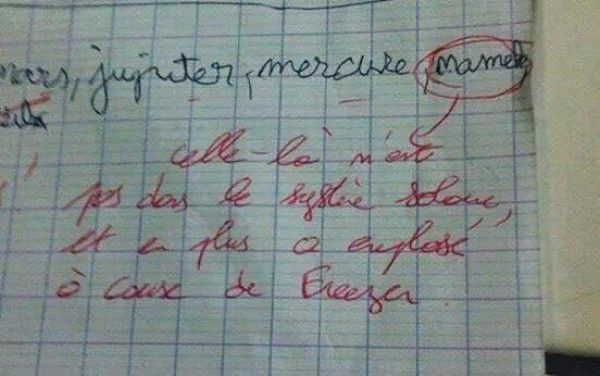 mars, jupiter, mercure, namek
celle-là n'est
pas dans le système solaire,
et en plus a explosé
à cause de Freezer.